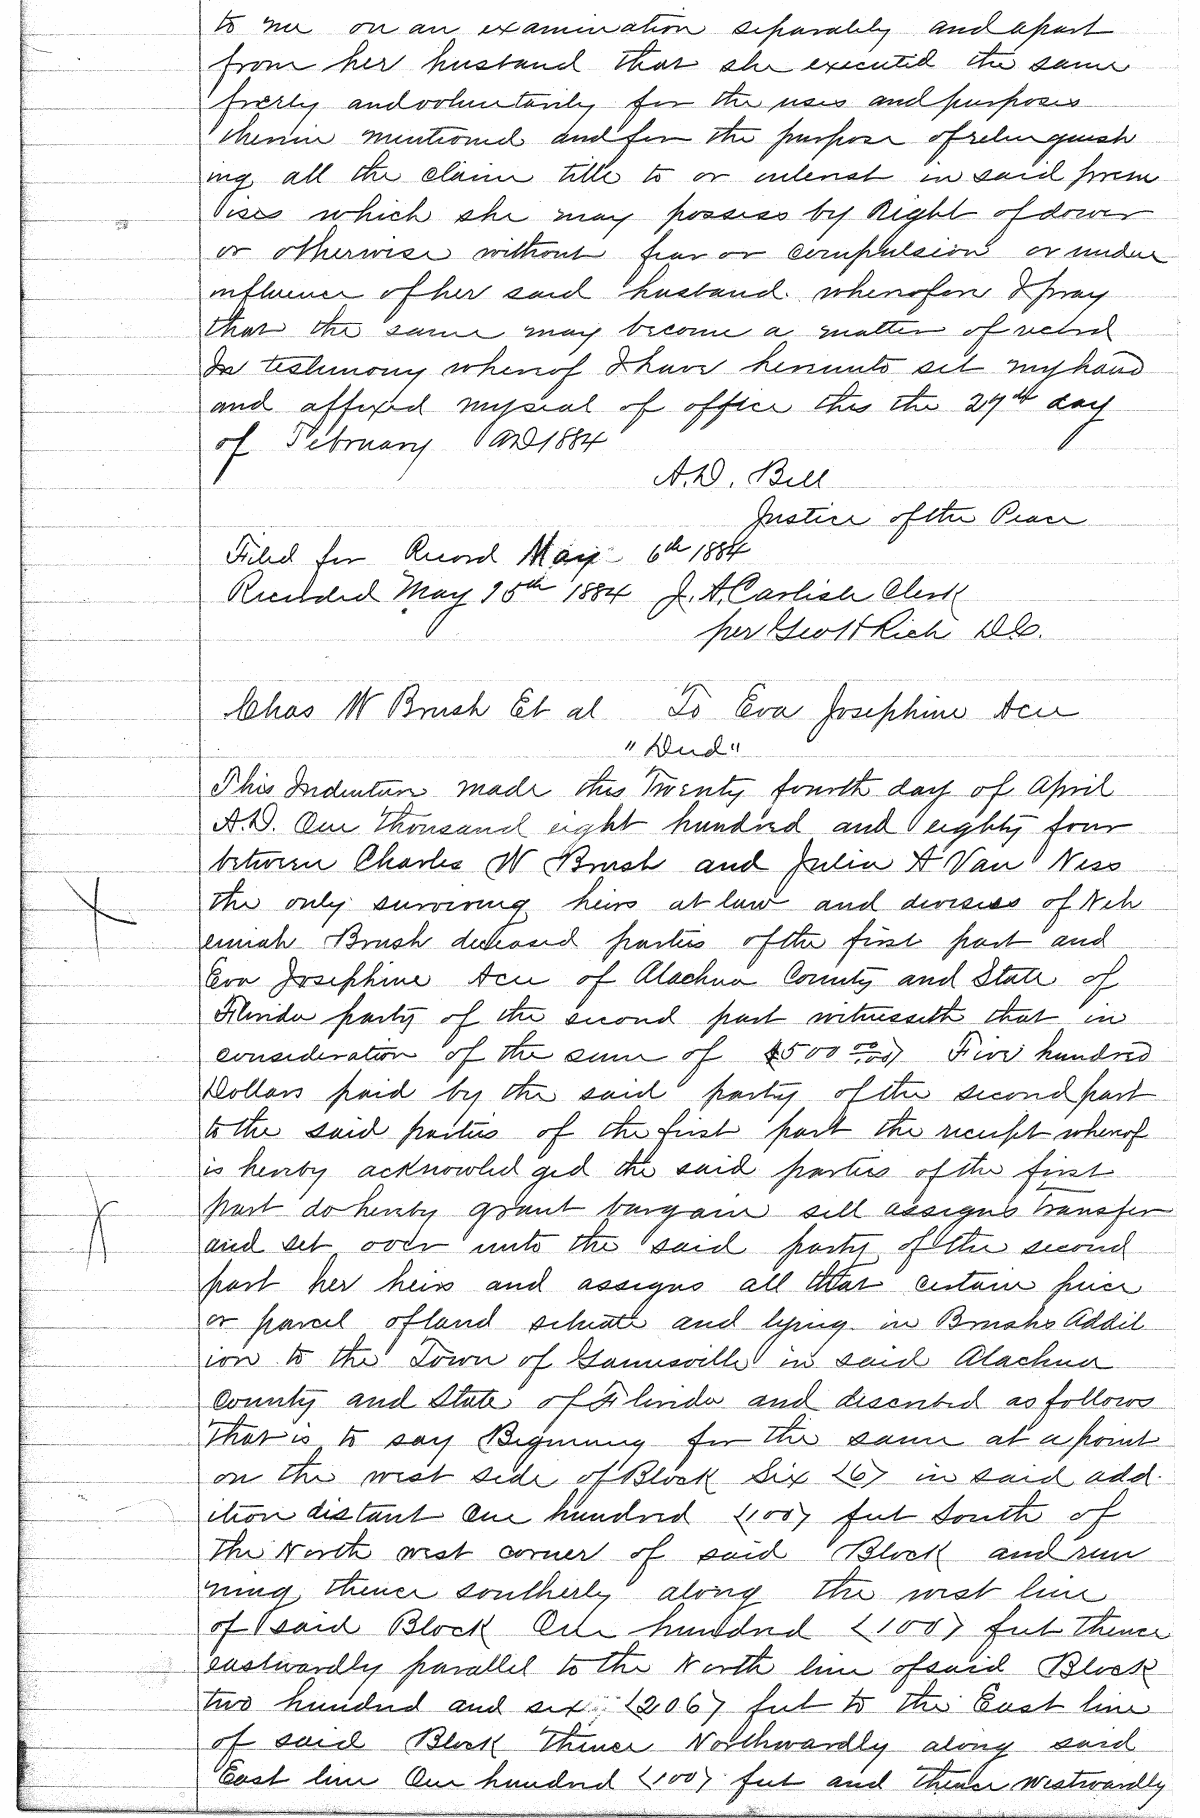 to me on an examination separately and apart
from her husband that she executed the same
freely and voluntarily for the uses and purposes
therein mentioned and for the purpose of relinquish
ing all the claim title to or interest in said prem
ises which she may possess by Right of dower
or otherwise without fear or compulsion or undue
influence of her said husband. wherefore I pray
that the same may become a matter of record
In testimony whereof I have hereunto set my hand
and affixed my seal of office this the 29th day
of February AD 1884
A.D. Bell
Justice of the Peace
Filed for Record May 6th 1884
Recorded May 15th 1884 J. A. Carlisle Clerk
per Rich D.C.
Chas W Brush Et al To Eva Josephine
"Deed"
This Indenture made this Twenty fourth day of April
A.D. One Thousand eight hundred and eighty four
between Charles W Brush and Julia A Van Ness
the only surviving heirs at law and devisees of Neh
emiah Brush deceased parties of the first part and
Eva Josephine of Alachua County and State of
Florida party of the second part witnesseth that in
consideration of the sum of $500 00/100 Five hundred
Dollars paid by the said party of the second part
to the said parties of the first part the receipt whereof
is hereby acknowledged the said parties of the first
part do hereby grant bargain sell assigns transfer
and set over unto the said party of the second
part her heirs and assigns all that certain piece
or parcel of land situate and lying in Brushs Addit
ion to the Town of Gainesville in said Alachua
County and State of Florida and described as follows
That is to say Beginning for the same at a point
on the west side of Block Six (6) in said add
ition distant One hundred (100) feet South of
the North west corner of said Block and run
ning thence southerly along the west line
of said Block One hundred (100) feet Thence
eastwardly parallel to the North line of said Block
two hundred and six (206) feet to the East line
of said Block Thence Northwardly along said
East line One hundred (100) feet and thence westwardly